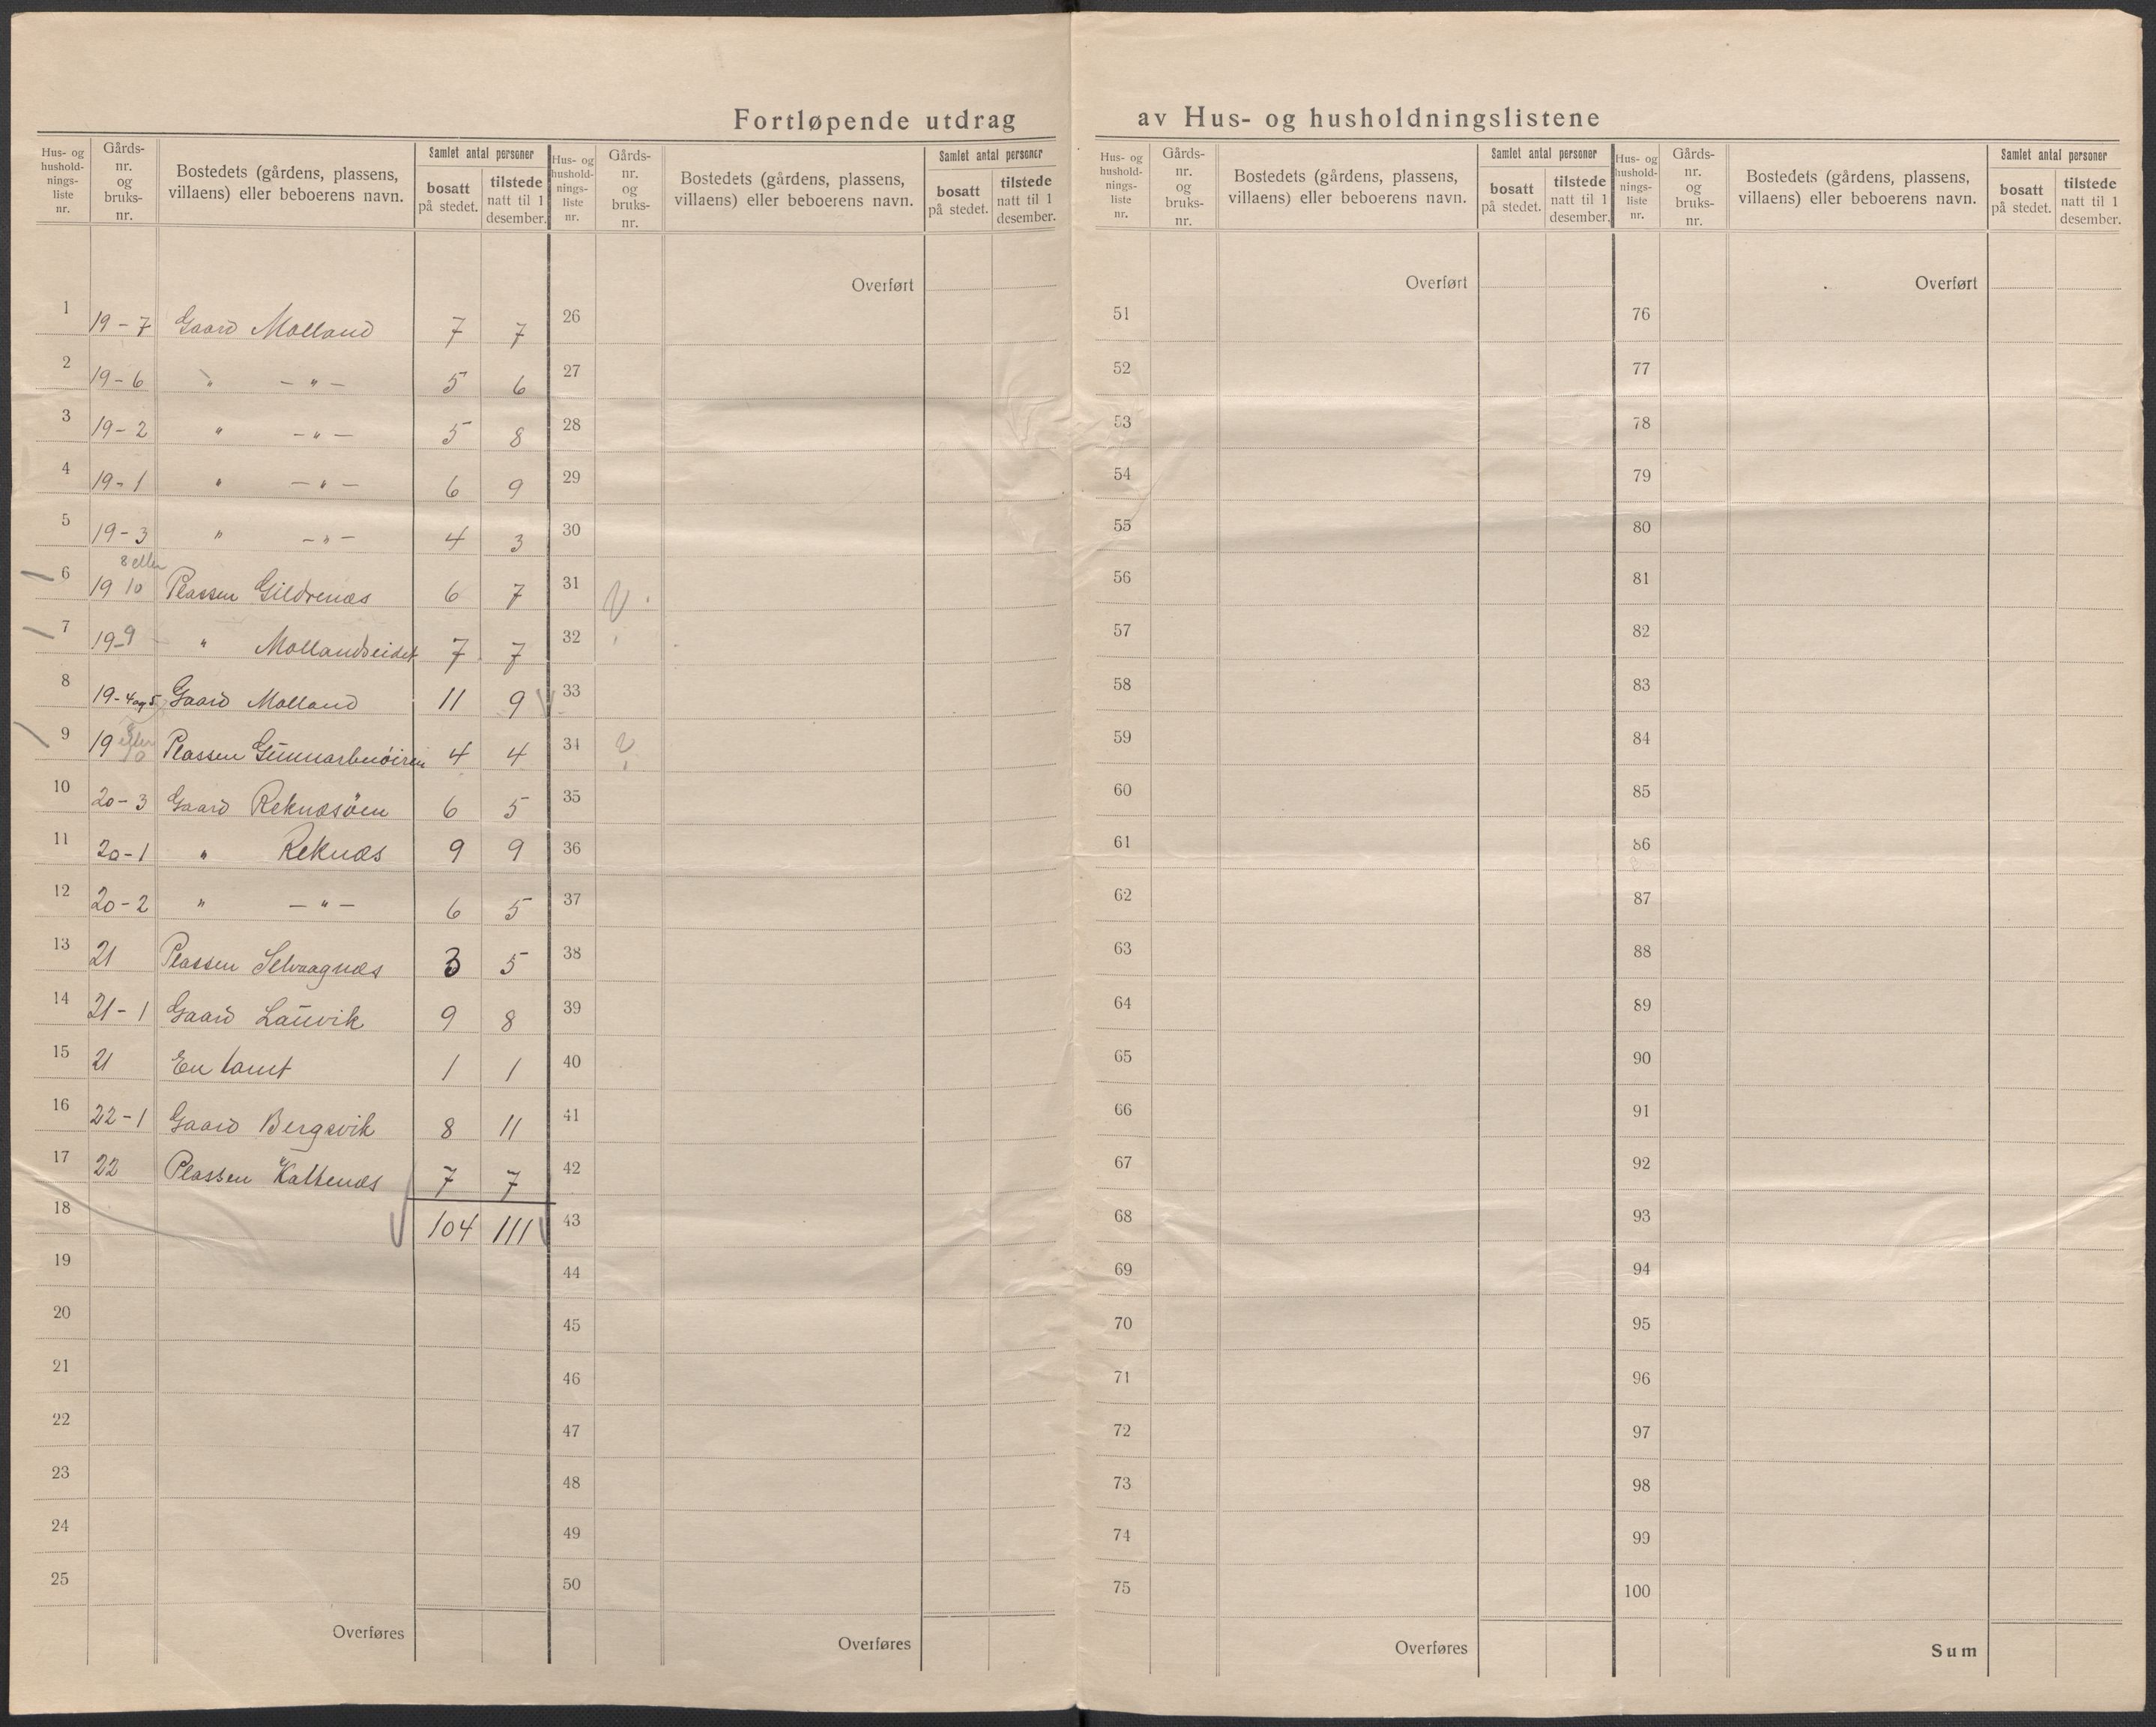 Fortløpende utdrag av Hus- og husholdningslistene
Hus- og hushold-nings-liste nr. Gårds-nr. og bruks-nr. Bostedets (gårdens, plassens, villaens) eller beboerens navn. Samlet antal personer bosatt på stedet. tilstede natt til 1 desember.
1 19-7 Gaard Molland 7 7
2 19-6 " -"- 5 6
3 19-2 " -"- 5 8
4 19-1 " -"- 6 9
5 19-3 " -"- 4 3
8 eller
6 19 10 Plassen Gildrenæs 6 7
7 19-9 " Mollandseidet 7 7
8 19-4og5 Gaard Molland 11 9
9 19 eller 10 Plassen 4 4
10 20-3 Gaard Reknæsöen 6 5
11 20-1 " Reknæs 9 9
12 20-2 " -"- 6 5
13 21 Plassen Selvaagnæs 3 5
14 21-1 Gaard Lauvik 9 8
15 21 En tomt 1 1
16 22-1 Gaard Bergsvik 8 11
17 22 Plassen Kaltenæs 7 7
18 104 111
19
20
21
22
23
24
25
Overføres
Hus- og hushold-nings-liste nr. Gårds-nr. og bruks-nr. Bostedets (gårdens, plassens, villaens) eller beboerens navn. Samlet antal personer bosatt på stedet. tilstede natt til 1 desember.
Overført
26
27
28
29
30
31
32
33
34
35
36
37
38
39
40
41
42
43
44
45
46
47
48
49
50
Overføres
Hus- og hushold-nings-liste nr. Gårds-nr. og bruks-nr. Bostedets (gårdens, plassens, villaens) eller beboerens navn. Samlet antal personer bosatt på stedet. tilstede natt til 1 desember.
Overført
51
52
53
54
55
56
57
58
59
60
61
62
63
64
65
66
67
68
69
70
71
72
73
74
75
Overføres
Hus- og hushold-nings-liste nr. Gårds-nr. og bruks-nr. Bostedets (gårdens, plassens, villaens) eller beboerens navn. Samlet antal personer bosatt på stedet. tilstede natt til 1 desember.
Overført
76
77
78
79
80
81
82
83
84
85
86
87
88
89
90
91
92
93
94
95
96
97
98
99
100
Sum